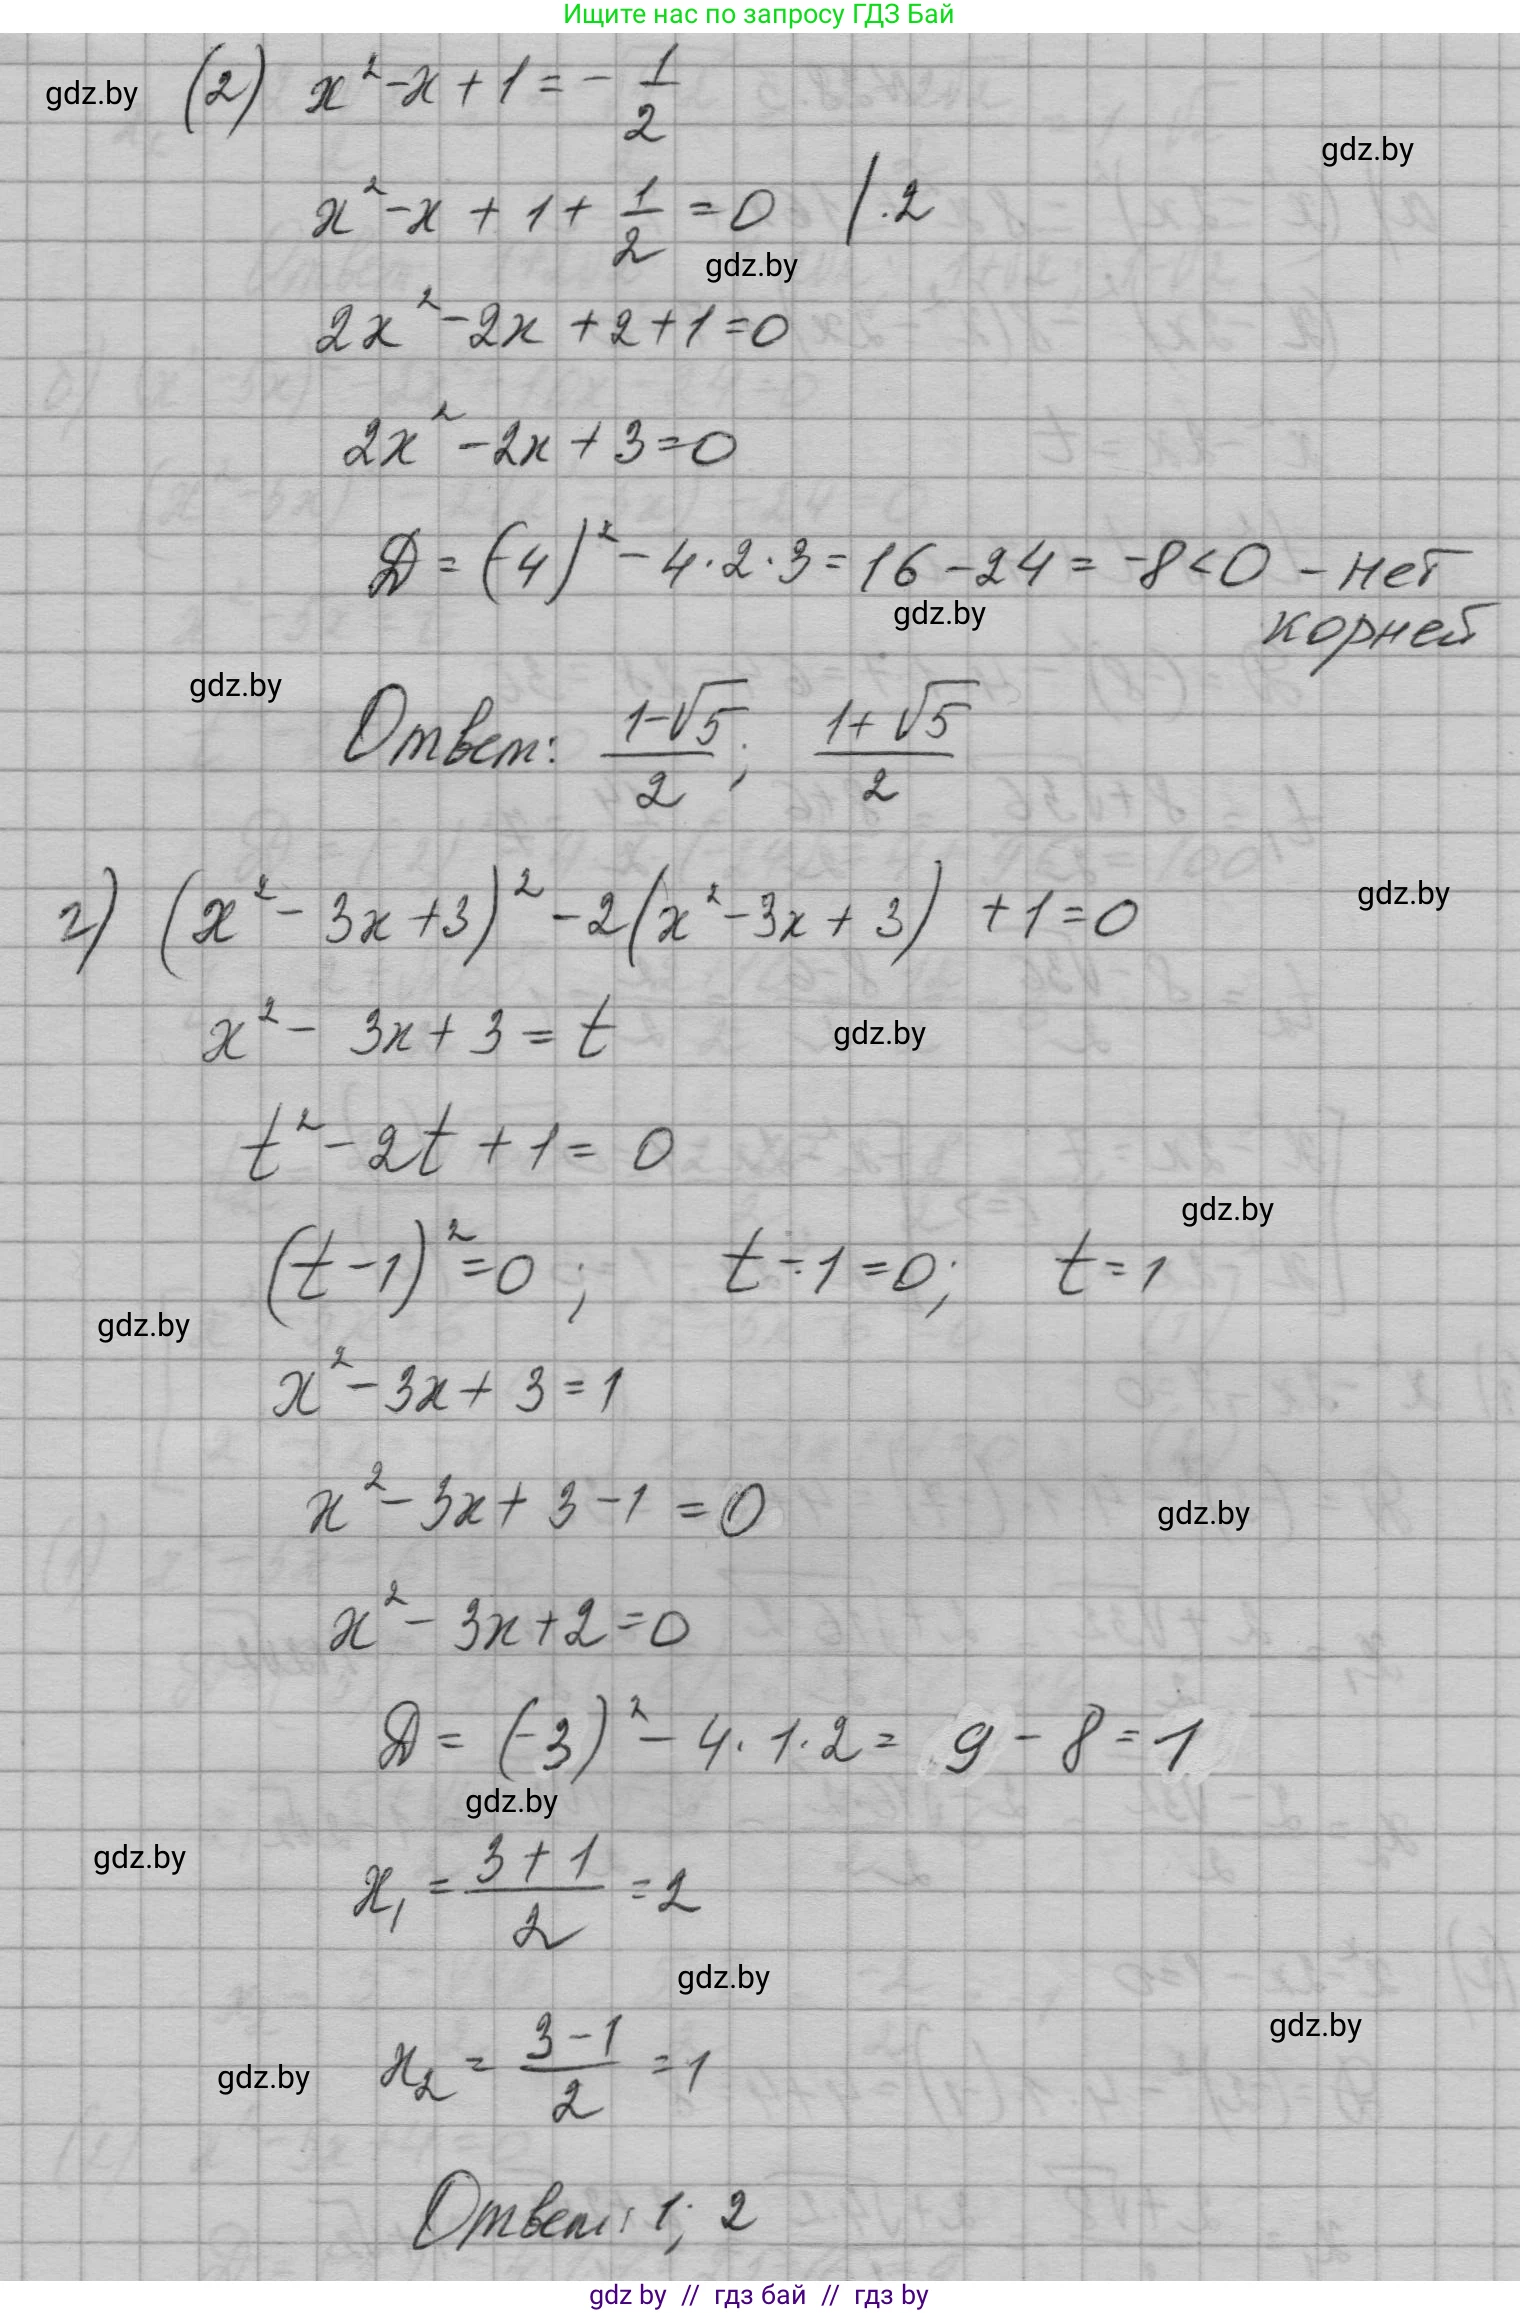 Ищите нас по запросу ГДЗ Бай
gdz.by
(2) x² - x + 1 = - 1/2
gdz.by
x² - x + 1 + 1/2 = 0 / · 2
gdz.by
2x² - 2x + 2 + 1 = 0
2x² - 2x + 3 = 0
D = (-4)² - 4 · 2 · 3 = 16 - 24 = -8 < 0 - нет
корней
gdz.by
gdz.by
Ответ: (1-√5)/2; (1+√5)/2
г) (x² - 3x + 3)² - 2(x² - 3x + 3) + 1 = 0
gdz.by
x² - 3x + 3 = t
gdz.by
t² - 2t + 1 = 0
gdz.by
(t - 1)² = 0; t - 1 = 0; t = 1
gdz.by
x² - 3x + 3 = 1
x² - 3x + 3 - 1 = 0
gdz.by
x² - 3x + 2 = 0
D = (-3)² - 4 · 1 · 2 = 9 - 8 = 1
gdz.by
gdz.by
x₁ = (3 + 1)/2 = 2
gdz.by
gdz.by
x₂ = (3 - 1)/2 = 1
gdz.by
Ответ: 1; 2
gdz by // гдз бай // гдз by